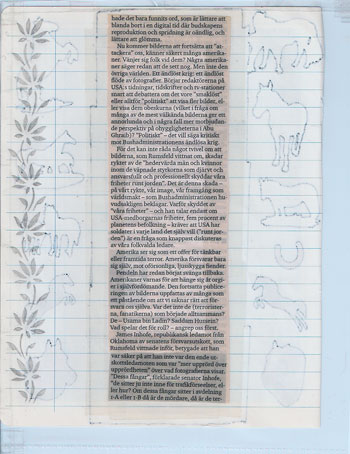 bade det bara funnits ord, som är lättare att
blanda bort i en digital tid där budskapens
reproduktion och spridning är oändlig, och
lättare att glömma.
Nu kommer bilderna att fortsätta att "at-
tackera" oss, känner säkert många amerika-
ner. Vänjer sig folk vid dem? Några amerika-
ner säger redan att de sett nog. Men inte den
övriga världen. Ett ändlöst krig: ett ändlöst
flöde av fotografier. Börjar redaktörerna på
USA:s tidningar, tidskrifter och tv-stationer
snart att debattera om det vore "smaklöst"
eller alltför "politiskt" att visa fler bilder, el-
ler visa dem obeskurna (vilket i fråga om
många av de mest välkända bilderna ger en
annorlunda och i några fall mer motbjudan-
de perspektiv på ohyggligheterna i Abu
Ghraib)? "Politiskt" – det vill säga kritiskt
mot Bushadministrationens ändlösa krig.
För det kan inte råda något tvivel om att
bilderna, som Rumsfeld vittnat om, skadar
ryktet av de "hedervärda män och kvinnor
inom de väpnade styrkorna som djärvt och
ansvarsfullt och professionellt skyddar våra
friheter runt jorden". Det är denna skada –
på vårt rykte, vår image, vår framgång som
världsmakt – som Bushadministrationen hu-
vudsakligen beklagar. Varför skyddet av
"våra friheter" – och han talar endast om
USA-medborgarnas friheter, fem procent av
planetens befolkning – kräver att USA har
soldater i varje land det själv vill ("runt jor-
den") är en fråga som knappast diskuteras
av våra folkvalda ledare.
Amerika ser sig som ett offer för tänkbar
eller framtida terror. Amerika försvarar bara
sig själv, mot oförsonliga, ljusskygga fiender.
Pendeln har redan börjat svänga tillbaka.
Amerikaner varnas för att hänge sig åt orgi-
er i självfördömande. Den fortsatta publice-
ringen av bilderna uppfattas av många som
ett påstående om att vi saknar rätt att för-
svara oss själva. Var det inte de (terrorister-
na, fanatikerna) som började alltsammans?
De – Usama bin Ladin? Saddam Hussein?
Vad spelar det för roll? – angrep oss först.
James Inhofe, republikansk ledamot från
Oklahoma av senatens försvarsutskott, som
Rumsfeld vittnade inför, betygade att han
var säker på att han inte var den ende ut-
skottsledamoten som var "mer upprörd över
upprördheten" över vad fotografierna visar.
"Dessa fångar", förklarade senator Inhofe,
"de sitter ju inte inne för trafikförseelser, el-
ler hur? Om dessa fångar sitter i avdelning
1-A eller 1-B då är de mördare, då är de ter-